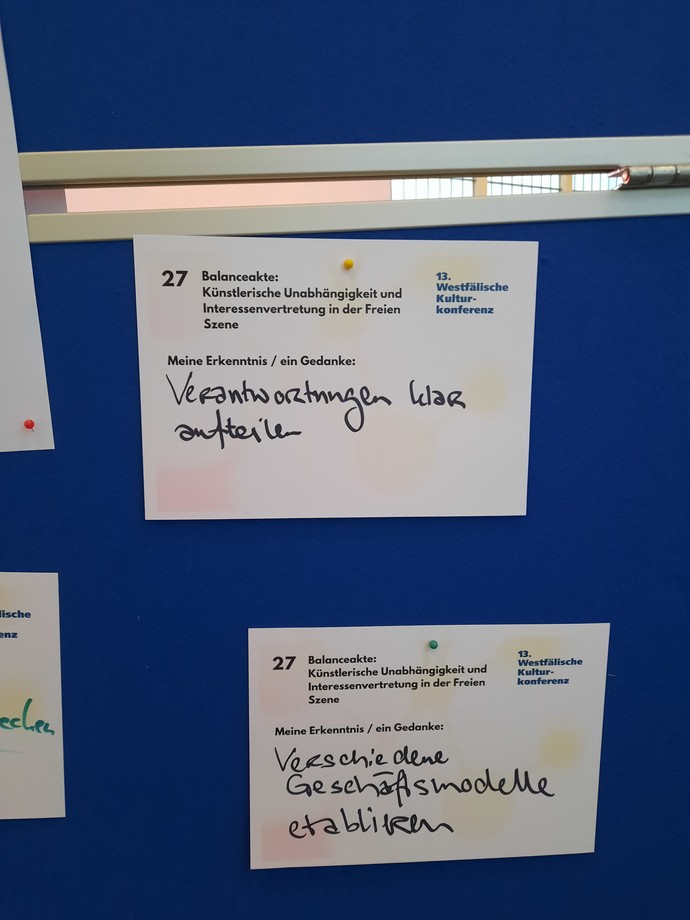 27 Balanceakte:
Künstlerische Unabhängigkeit und
Interessenvertretung in der Freien
Szene
13.
Westfälische
Kultur-
konferenz
Meine Erkenntnis / ein Gedanke:
Verantwortungen klar
aufteilen
27 Balanceakte:
Künstlerische Unabhängigkeit und
Interessenvertretung in der Freien
Szene
13.
Westfälische
Kultur-
konferenz
Meine Erkenntnis / ein Gedanke:
Verschiedene
Geschäftsmodelle
etablieren